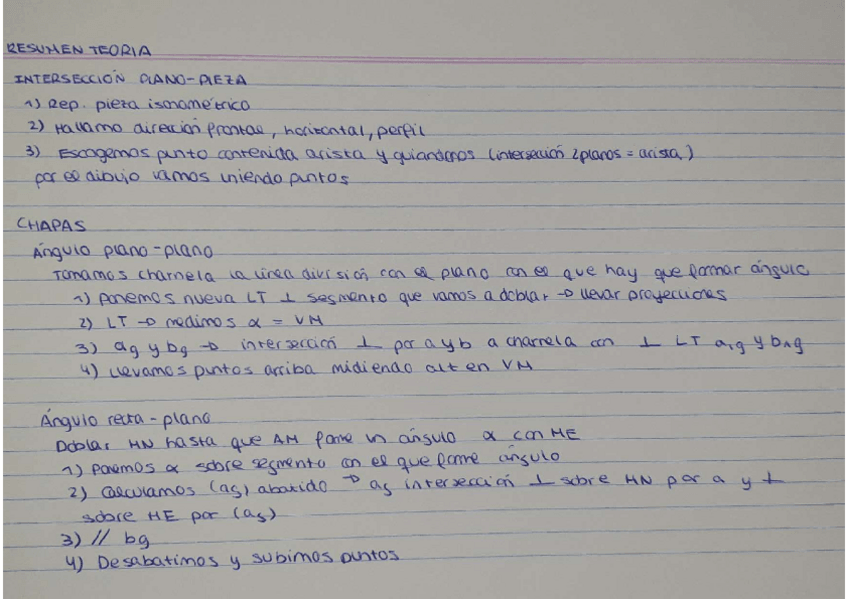 RESUMEN TEORIA
INTERSECCIÓN PLANO-PIEZA
1) Rep. pieza isométrico
2) Hallamo dirección frontal, horizontal, perfil
3) Escogemos punto contenida arista y guiandonos (intersección 2planos = arista)
por el dibujo vamos uniendo puntos
CHAPAS
Ángulo plano-plano
Tomamos charnela la línea división con el plano con el que hay que formar ángulo
1) Ponemos nueva LT ⊥ segmento que vamos a doblar → llevar proyecciones
2) LT → medimos α = VM
3) ag y bg → intersección ⊥ por a y b a charnela con ⊥ LT a1g y b1g
4) Llevamos puntos arriba midiendo alt en VM
Ángulo recta-plano
Doblar MN hasta que AM forme un ángulo α con ME
1) Ponemos α sobre segmento con el que forme ángulo
2) Calculamos (ag) abatido → ag intersección ⊥ sobre MN por a y ⊥
sobre ME por (ag)
3) // bg
4) Desabatimos y subimos puntos